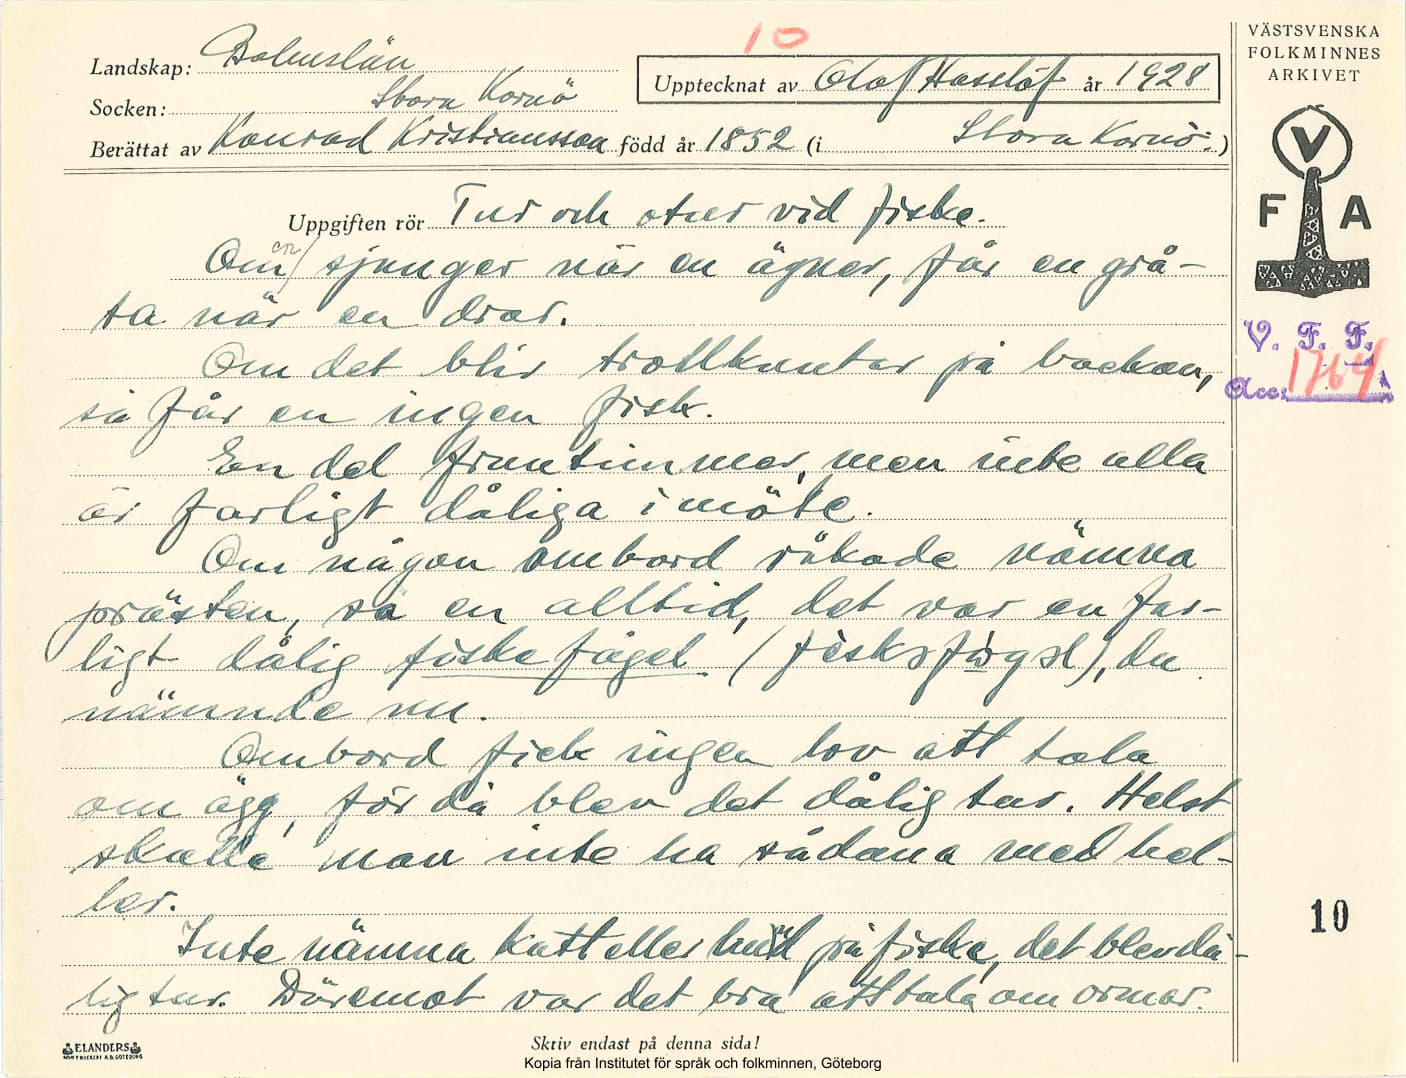 10
VÄSTSVENSKA
FOLKMINNES
ARKIVET
Landskap: Bohuslän
Socken: Stora Kornö
Upptecknat av Olof Hasslöf år 1928
Berättat av Konrad Kristiansson född år 1852 (i Stora Kornö.)
V
F A
Uppgiften rör Tur och otur vid fiske.
Om en sjunger när en ägner, får en grå-
ta när en drar.
Om det blir trollkuntar på backan,
så får en ingen fisk.
En del fruntimmer, men inte alla
är farligt dåliga i möte.
Om någon ombord råkade nämna
prästen, sa en alltid, det var en far-
ligt dålig fiskefågel ( ), du
nämnde nu.
Ombord fick ingen lov att tala
om ägg, för då blev det dålig tur. Helst
skulle man inte ha sådana med hel-
ler.
Inte nämna katt eller på fiske, det blev då-
lig tur. Däremot var det bra att tala om ormar.
V. F. F.
Acc: 1764
10
ELANDERS
BOKTRYCKERI A.B. GÖTEBORG
Skriv endast på denna sida!
Kopia från Institutet för språk och folkminnen, Göteborg